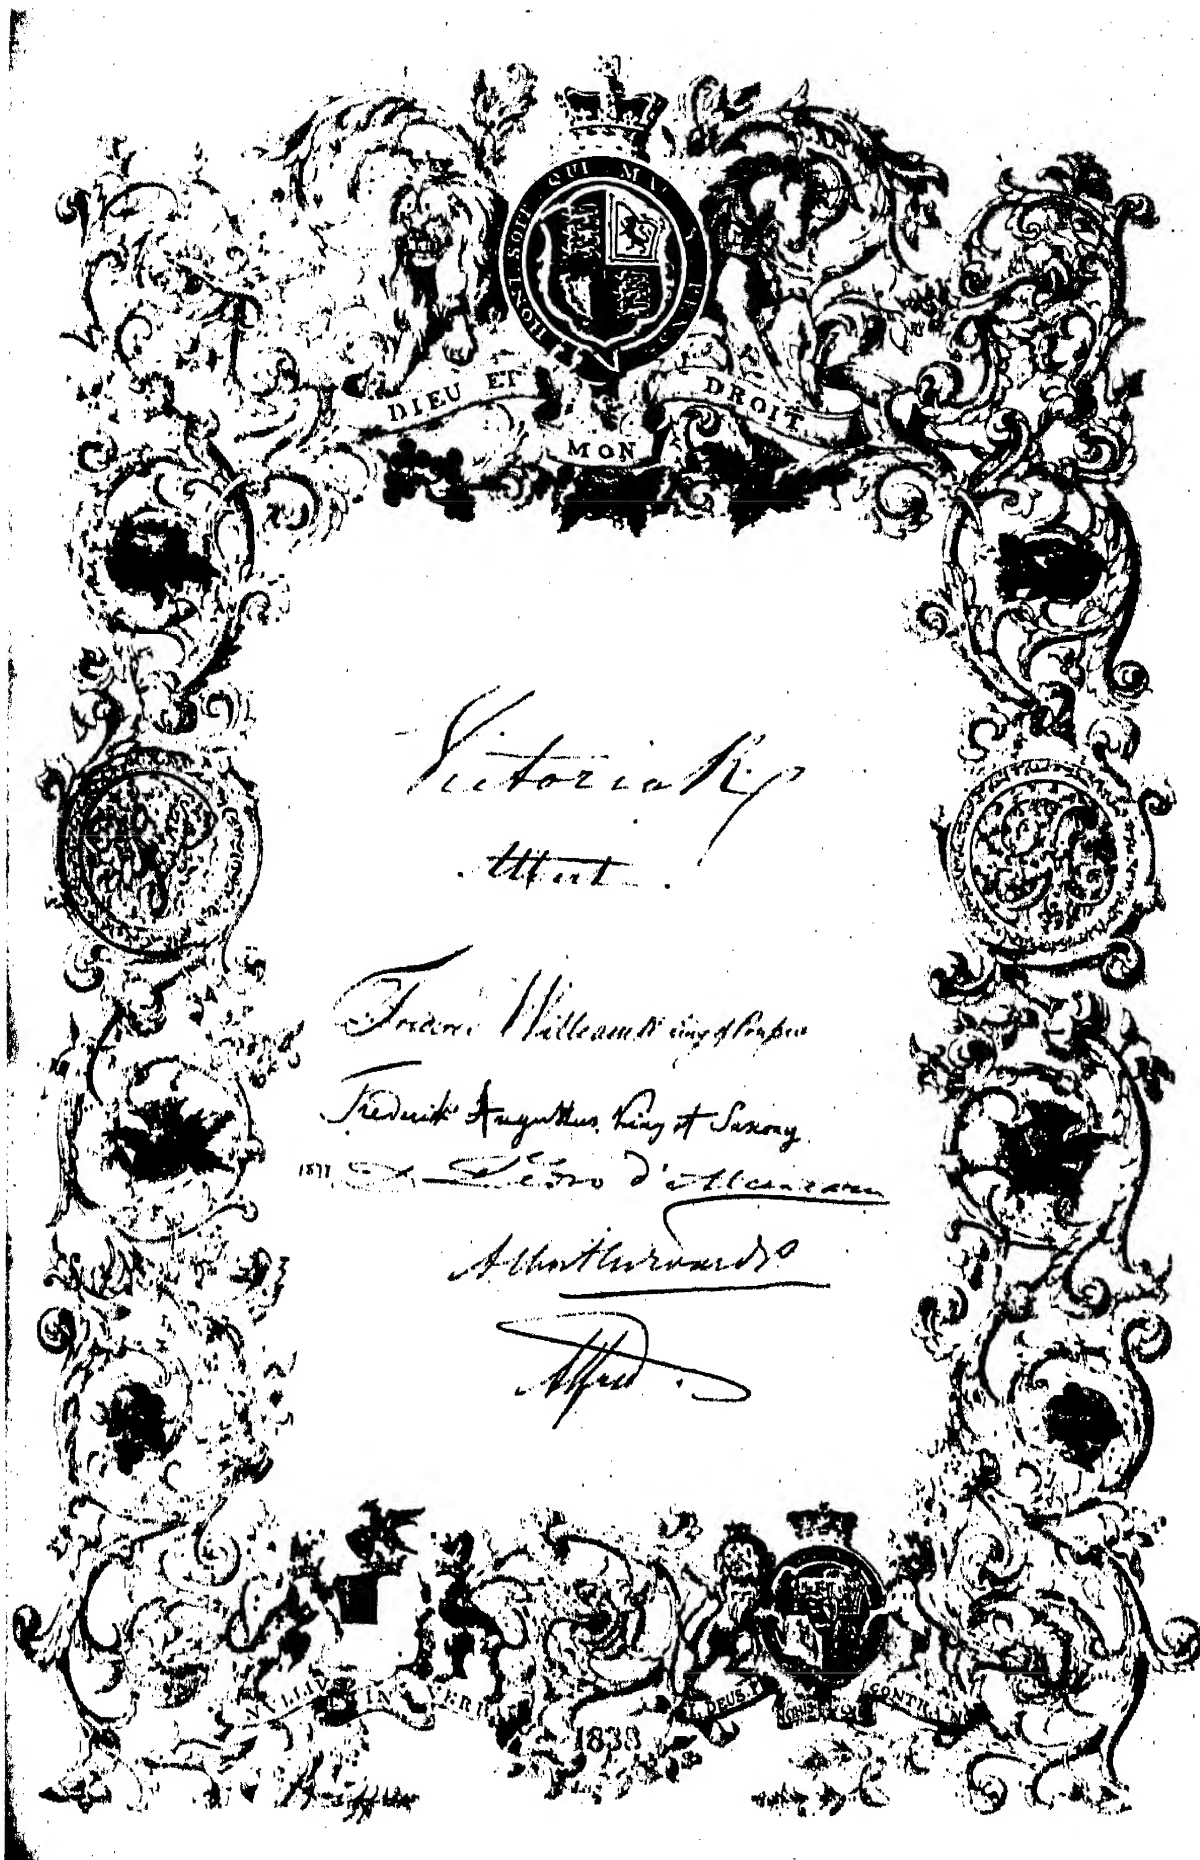 HONI SOIT QUI MAL Y PENSE
DIEU ET MON DROIT
Victoria R.
Albert.
Frederic William R king of Prussia
Frederick Augustus, king of Saxony.
D. Pedro d'Alcantara
Albert Edward
Alfred.
NULLIUS IN VERBA
DEUS
CONTRA
1838